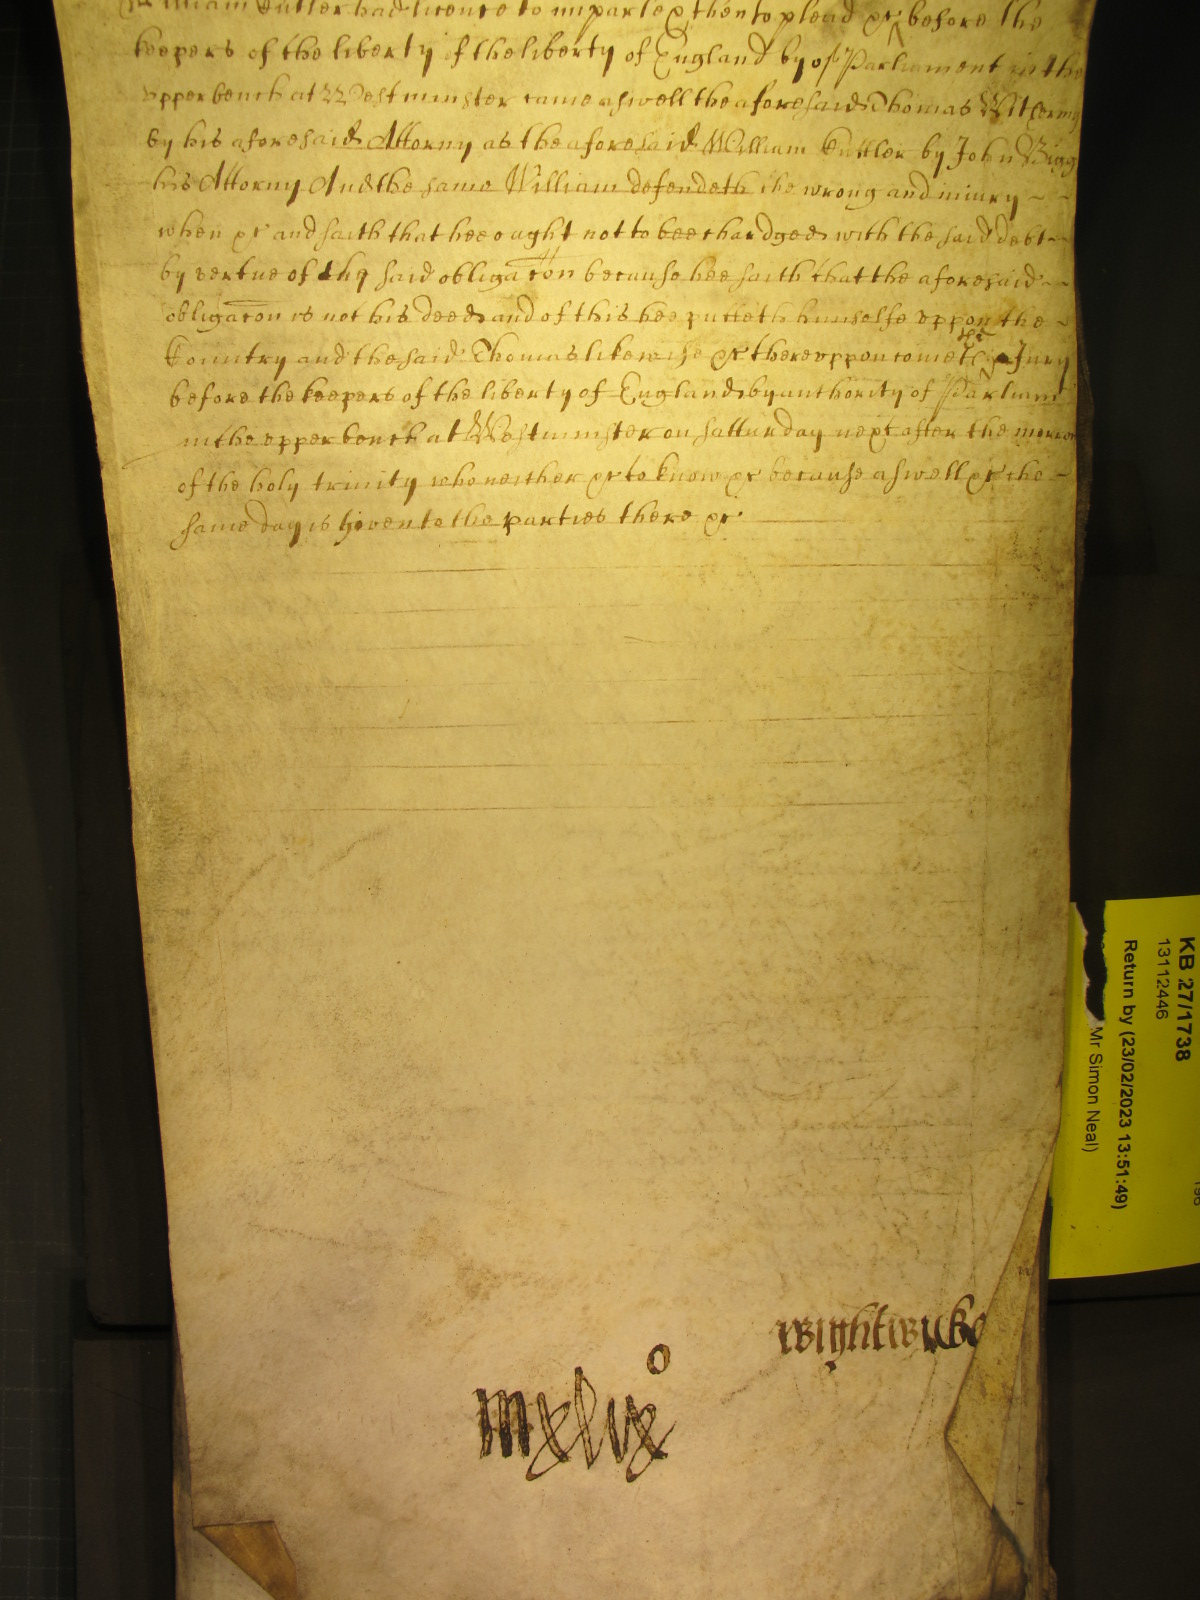 William Cutler had licence to imparle & then to plead &c before the
keepers of the liberty of the liberty of England by of Parliament in the
upper bench at Westminster came aswell the aforesaid Thomas
by his aforesaid Attorny as the aforesaid William Cuttler by John Bigg
his Attorny And the same William defendeth the wrong and iniury
when &c and saith that hee ought not to bee chardged with the said debt
by vertue of the said obligacon because hee saith that the aforesaid
obligacon is not his deed and of this hee putteth himselfe uppon the
Country and the said Thomas likewise &c thereuppon cometh the Jury
before the keepers of the liberty of England by authority of Parliam
in the upper bench at Westminster on satturday next after the morrow
of the holy trinity who neither &c to know &c because aswell &c the
same day is given to the parties there &c
wightwicke
mxlix o
KB 27/1738
13112446
Return by (23/02/2023 13:51:49)
Mr Simon Neal)